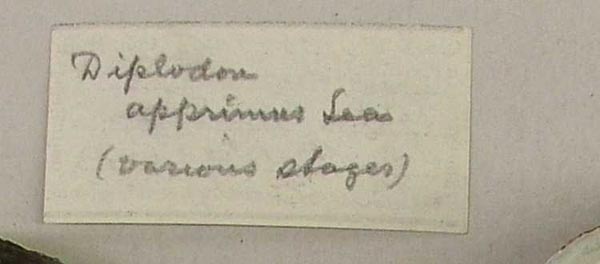 Diplodon
apprimus Lea
(various stages)